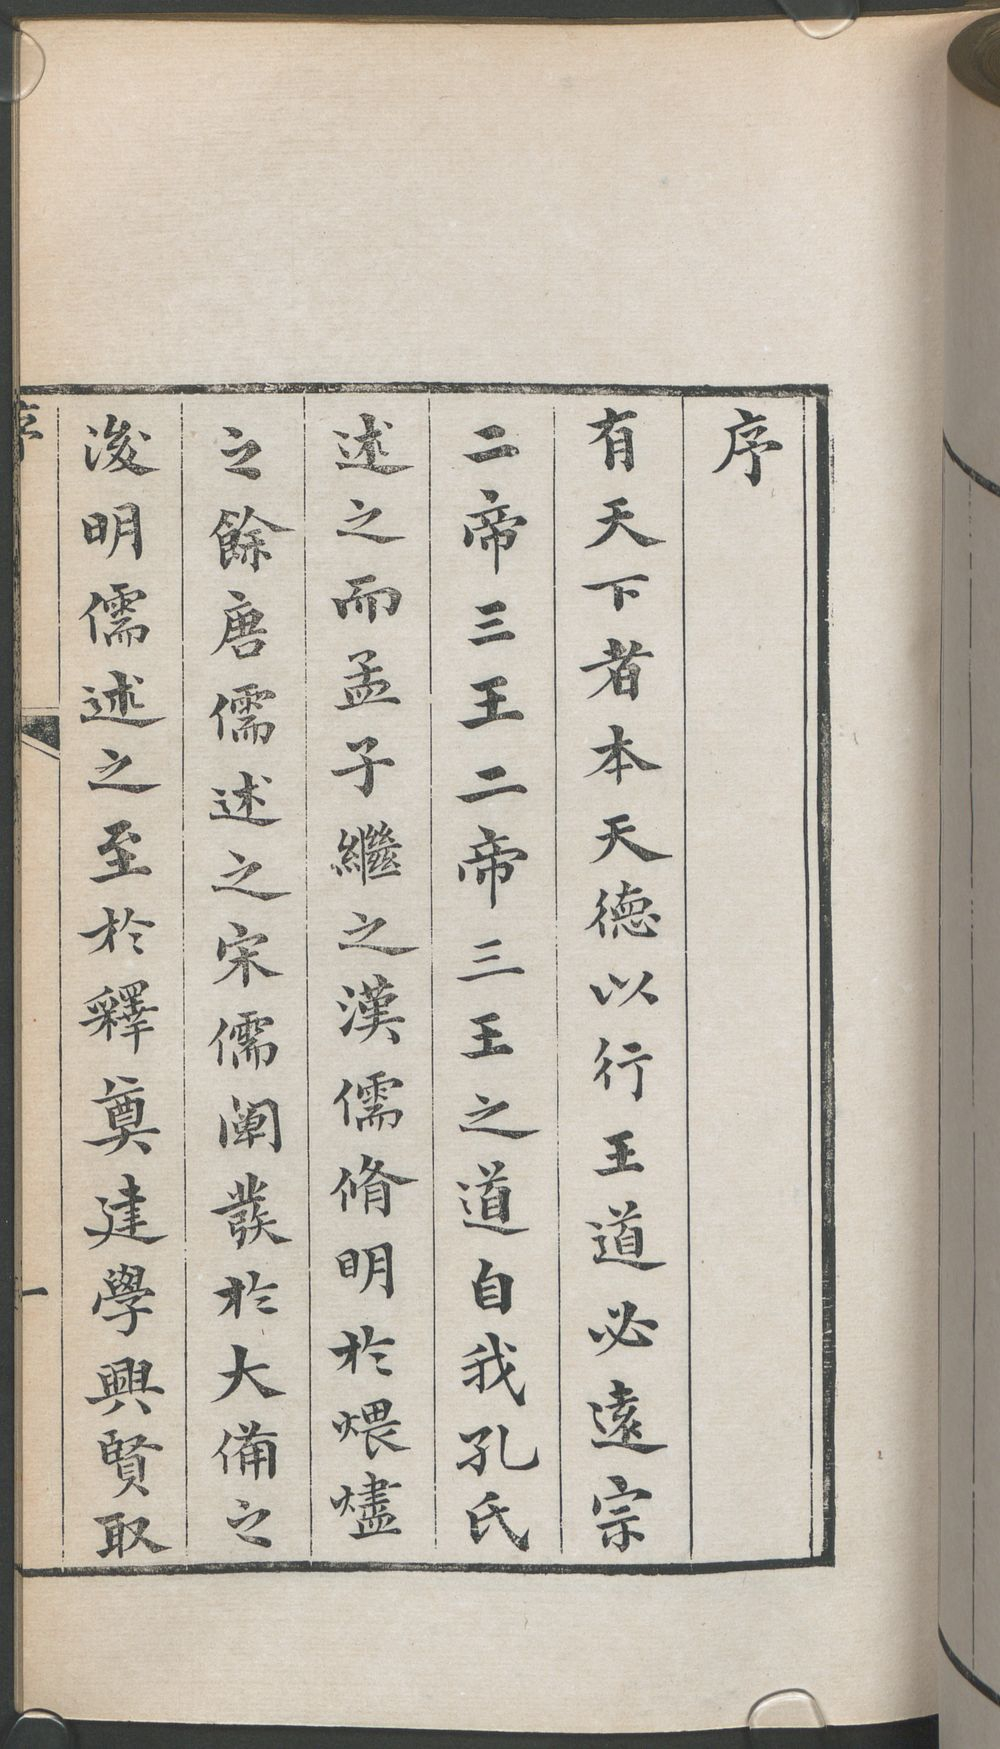 序
有天下者本天德以行王道必遠宗
二帝三王二帝三王之道自我孔氏
述之而孟子繼之漢儒脩明於煨燼
之餘唐儒述之宋儒闡發於大備之
後明儒述之至於釋奠建學興賢取
序
一